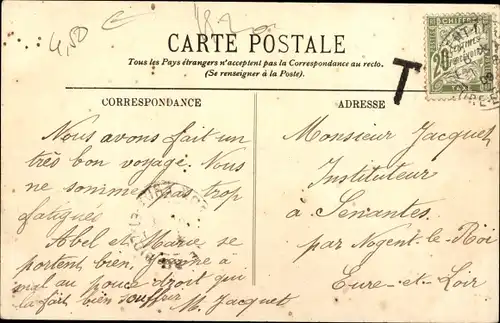 4,50
CARTE POSTALE
Tous les Pays étrangers n'acceptent pas la Correspondance au recto.
(Se renseigner à la Poste).
T
20
CORRESPONDANCE
Nous avons fait un
très bon voyage. Nous
ne sommes pas trop
fatigués
Abel et Marie se
portent bien,
mal au pouce droit qui
la fait bien souffrir
M. Jacquet
ADRESSE
Monsieur Jacquet
Instituteur
à Senantes
par Nogent-le-Roi
Eure-et-Loir